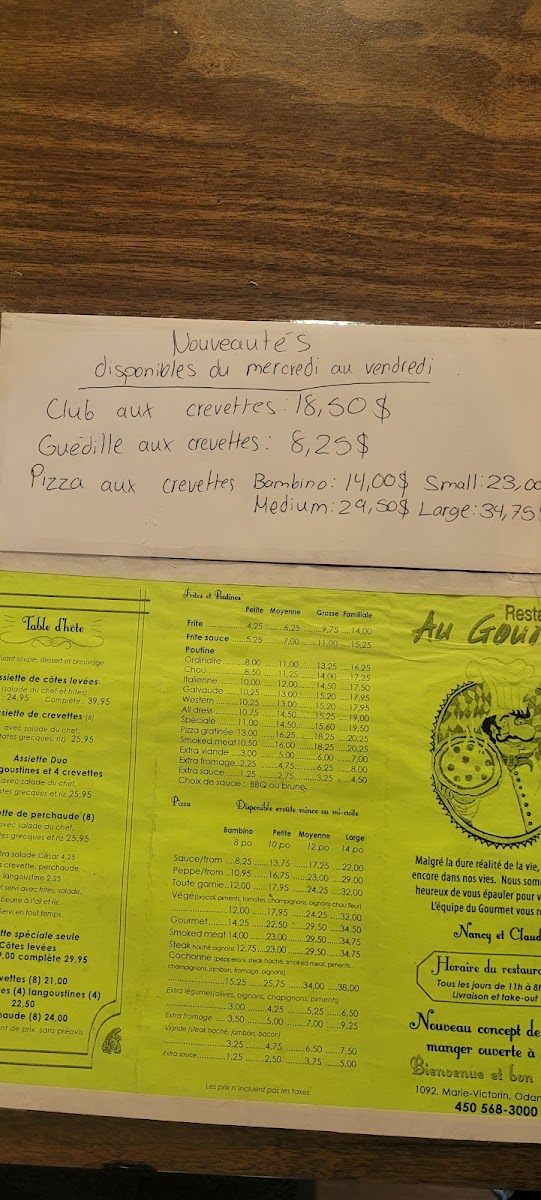 Nouveautés
disponibles du mercredi au vendredi
Club aux crevettes: 18,50$
Guédille aux crevettes: 8,25$
Pizza aux crevettes Bambino: 14,00$ Small: 23,00
Medium: 29,50$ Large: 34,75$
Table d'hôte
soupe, dessert et breuvage
ssiette de côtes levées
(salade du chef et frites)
: 24,95 Complète : 39,95
ssiette de crevettes (8)
avec salade du chef,
ates grecques, riz) 25,95
Assiette Duo
ngoustines et 4 crevettes
ates grecques et riz 25,95
tte de perchaude (8)
avec salade du chef,
es grecques et riz 25,95
tra salade César 4,25
crevette, perchaude,
langoustine 2,25
t servi avec frites, salade,
beurre à l'ail et riz.
Servi en tout temps
tte spéciale seule
Côtes levées
9,00 complète 29,95
vettes (8) 21,00
es (4) langoustines (4)
22,50
haude (8) 24,00
nt de prix sans préavis
Frites et Poutines
Petite Moyenne Grosse Familiale
Frite 4,25 6,25 9,75 14,00
Frite sauce 5,25 7,00 11,00 15,25
Poutine
Ordinaire 8,00 11,00 13,25 16,25
Chou 8,50 11,25 14,00 17,25
Italienne 10,00 12,00 14,50 17,50
Galvaude 10,25 13,00 15,20 17,95
Western 10,25 13,00 15,20 17,95
All dress 10,75 14,50 15,25 19,00
Spéciale 11,00 14,50 15,60 19,50
Pizza gratinée 13,00 16,25 18,25 20,25
Smoked meat 10,50 16,00 18,25 20,25
Extra viande 3,00 5,00 6,00 7,00
Extra fromage 2,25 4,75 6,25 8,00
Extra sauce 1,25 2,75 3,25 4,50
Choix de sauce : BBQ ou brune
Pizza Disponible croûte mince ou mi-cuite
Bambino Petite Moyenne Large
8 po 10 po 12 po 14 po
Sauce/from 8,25 13,75 17,25 22,00
Peppe/from 10,95 16,75 23,00 29,00
Toute garnie 12,00 17,95 24,25 32,00
Végé (brocoli, piments, tomates, champignons, oignons chou fleur)
12,00 17,95 24,25 32,00
Gourmet 14,25 22,50 29,50 34,50
Smoked meat 14,00 23,00 29,50 34,75
Steak haché oignons 12,75 23,00 29,50 34,75
Cochonne (pepperoni, steak haché, smoked meat, piments,
champignons, jambon, fromage, oignons)
15,25 25,75 34,00 38,00
Extra légumes (olives, oignons, chapignons, piments)
3,00 4,25 5,25 6,50
Extra fromage 3,50 5,00 7,00 9,25
Viande (steak haché, jambon, bacon)
3,25 4,75 6,50 7,50
Extra sauce 1,25 2,50 3,75 5,00
Les prix n'incluent pas les taxes.
Resta
Au Gour
Malgré la dure réalité de la vie,
encore dans nos vies. Nous som
heureux de vous épauler pour v
L'équipe du Gourmet vous r
Nancy et Claud
Horaire du restaur
Tous les jours de 11h à 8h
Livraison et take-out
Nouveau concept de
manger ouverte à
Bienvenue et bon
1092, Marie-Victorin, Odan
450 568-3000